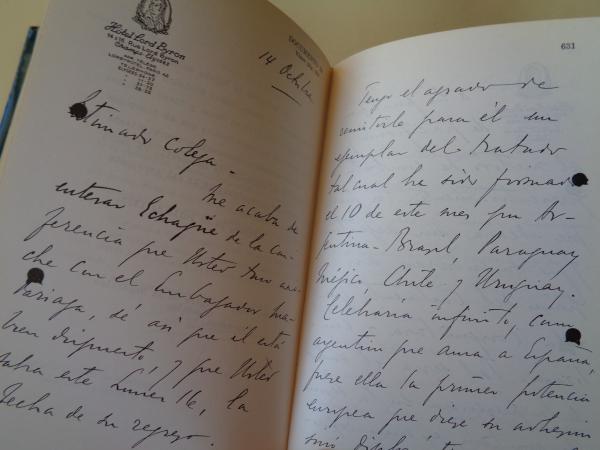 Hotel Lord Byron
14 & 16, Rue Lord Byron
Champs-Elysées
14 Octubre
Estimado Colega -
Me acaba de
enterar Echagüe de la con-
ferencia que Usted tuvo ano-
che con el Embajador Ma-
dariaga, de así que él está
bien dispuesto, y que Usted
este Lunes 16, la
fecha de su regreso.
631
Tengo el agrado de
remitirle para él un
ejemplar del tratado
tal cual ha sido firmado
el 10 de este mes por Ar-
gentina - Brasil, Paraguay
Méjico, Chile y Uruguay.
Celebraría infinito, como
argentino que ama a España,
fuese ella la primer potencia
europea que diese su adhesión